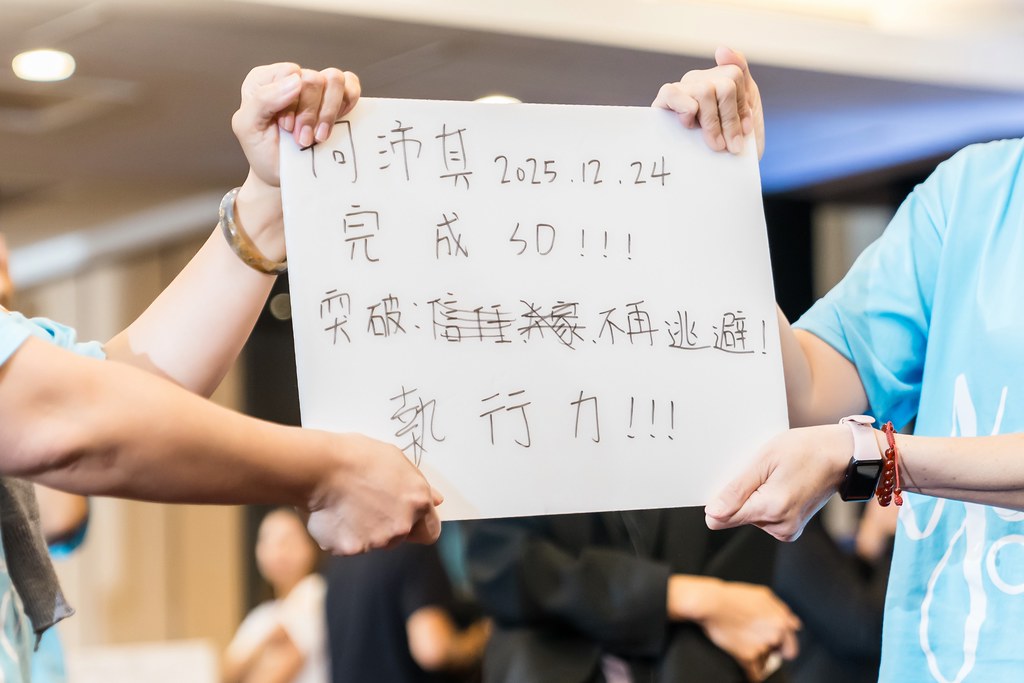 何沛真 2025.12.24
完成 SD!!!
突破:信任 不再逃避!
執行力!!!